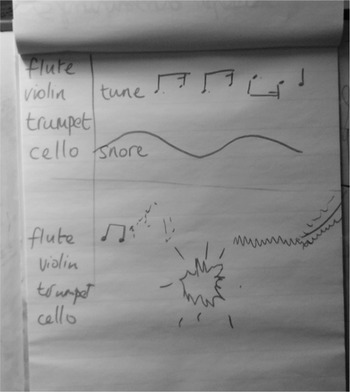 flute
violin tune
trumpet
cello snore
flute
violin
trumpet
cello